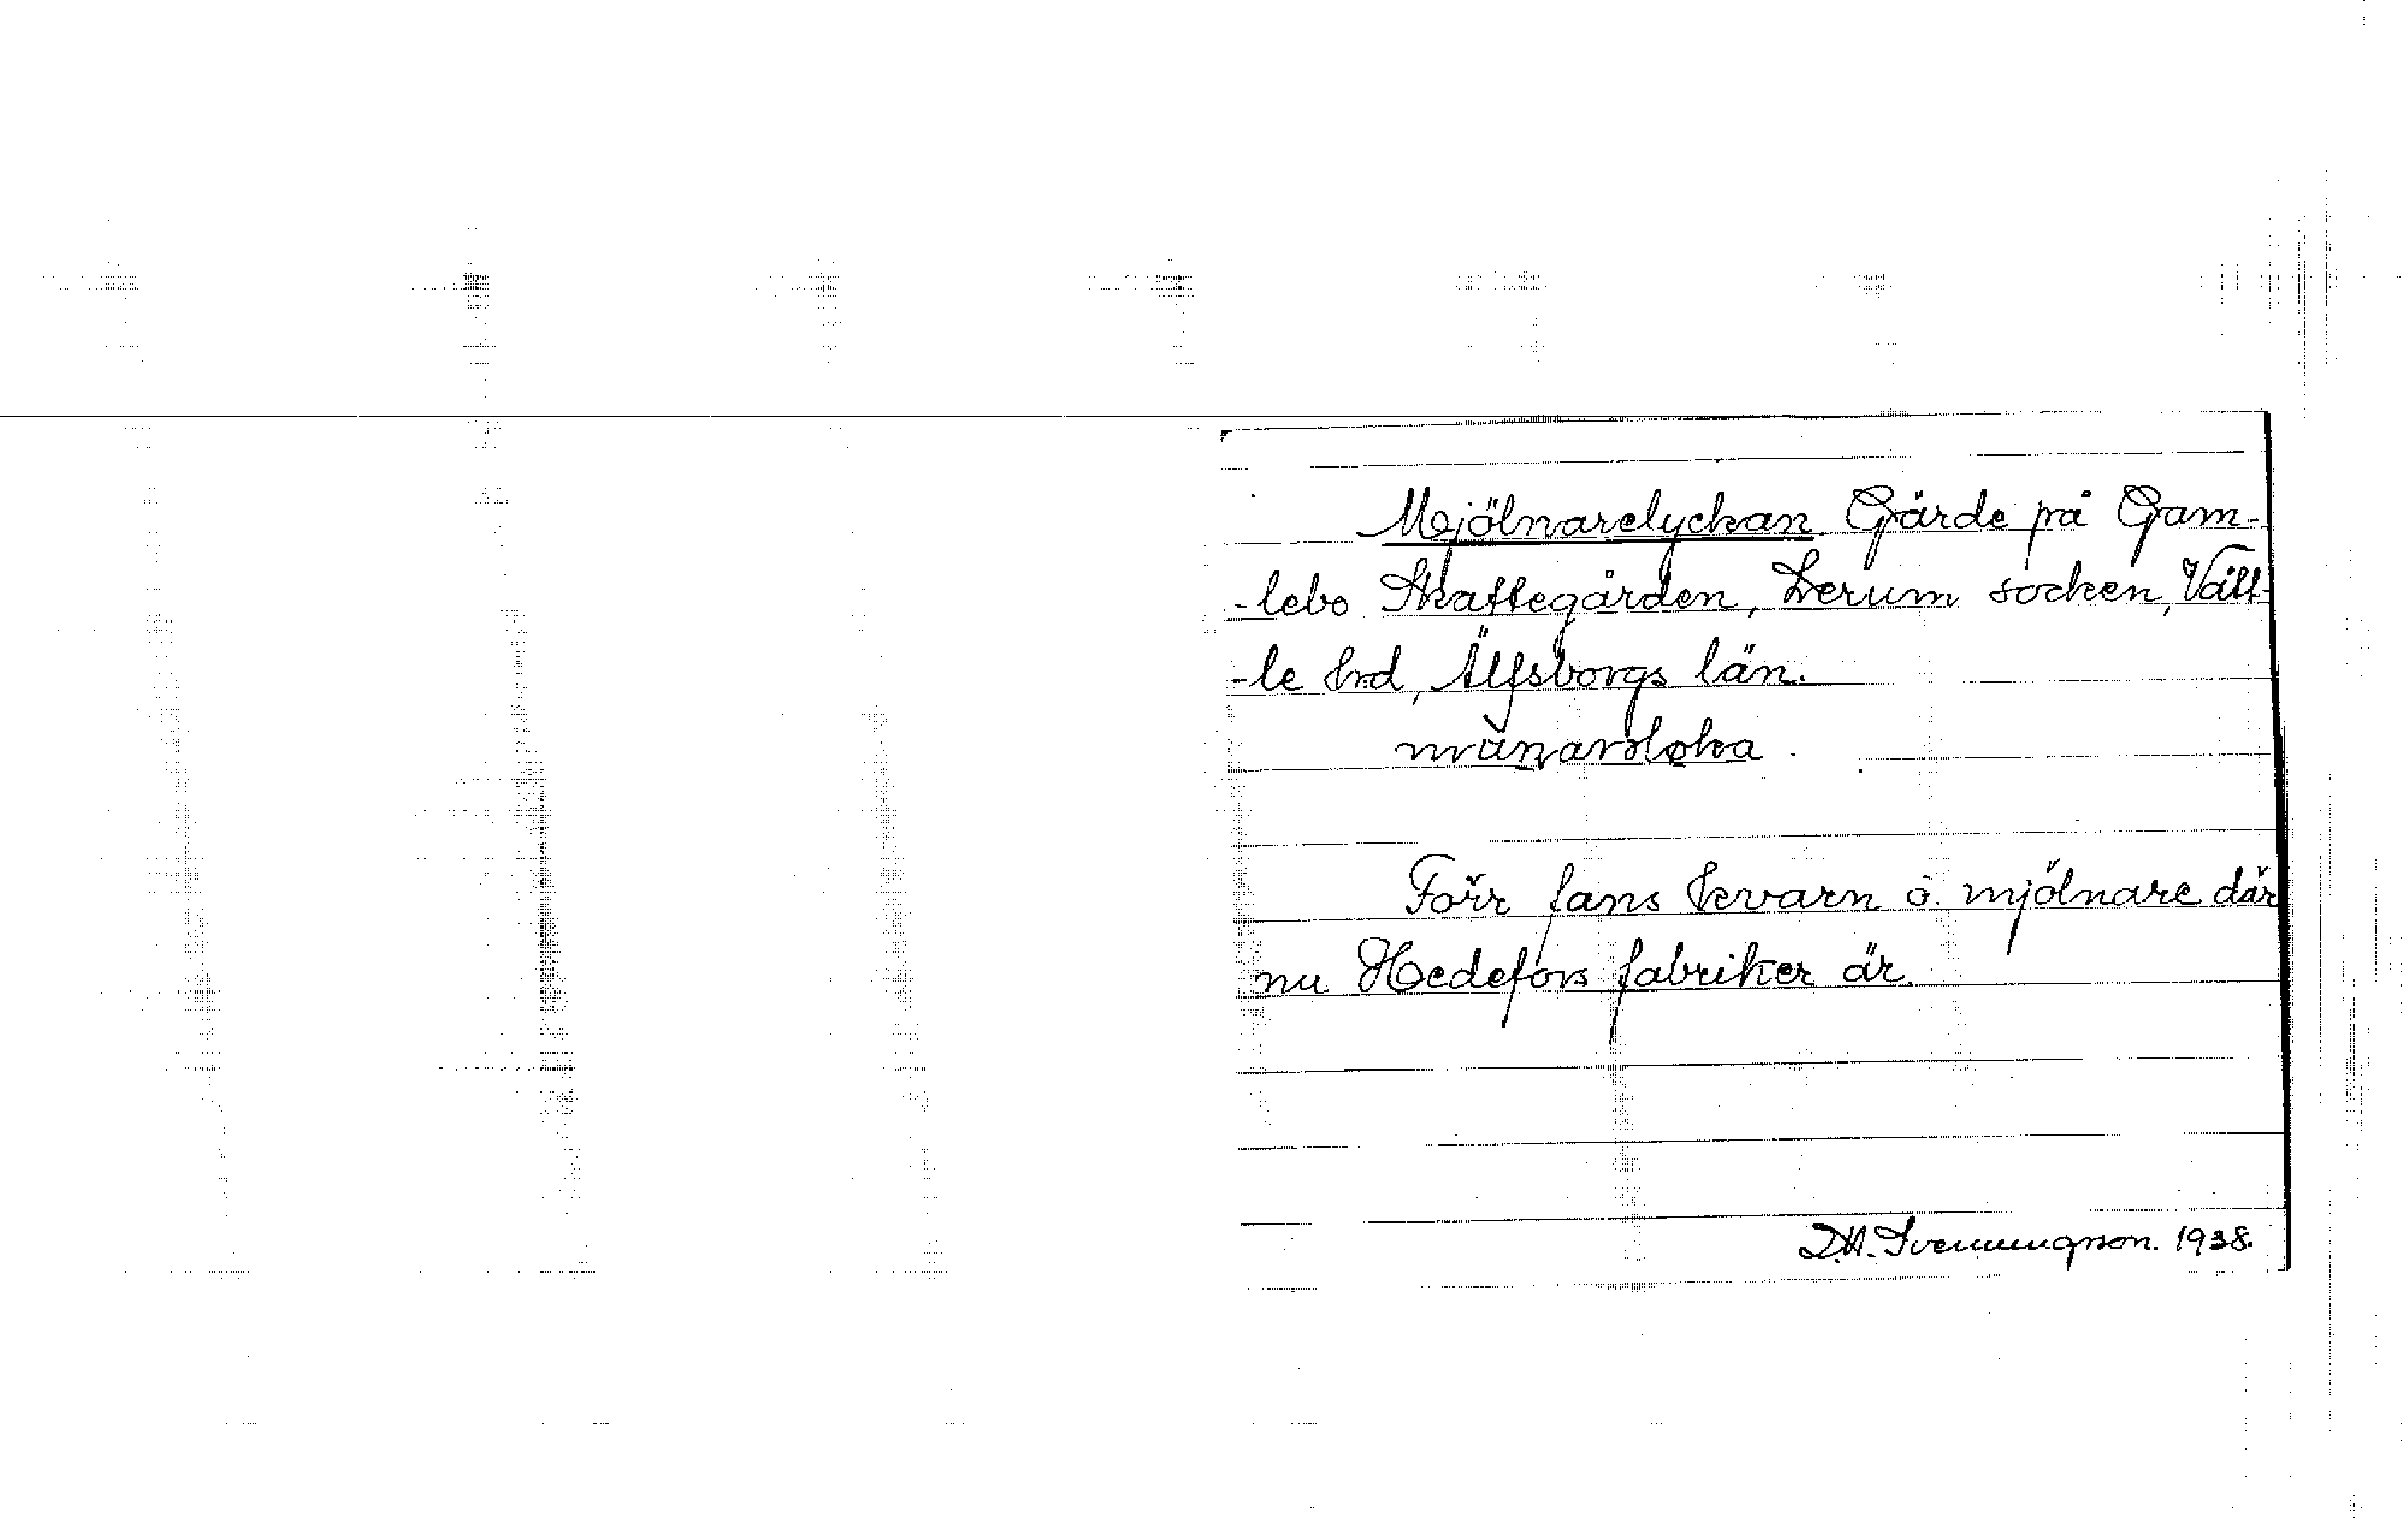 Mjölnarelyckan. Gärde på Gam-
-lebo Skattegården, Lerum socken, Vätt-
-le hrd, Älfsborgs län.
Förr fans kvarn o. mjölnare där
nu Hedefors fabriker är.
D.A. Svenungsson. 1938.